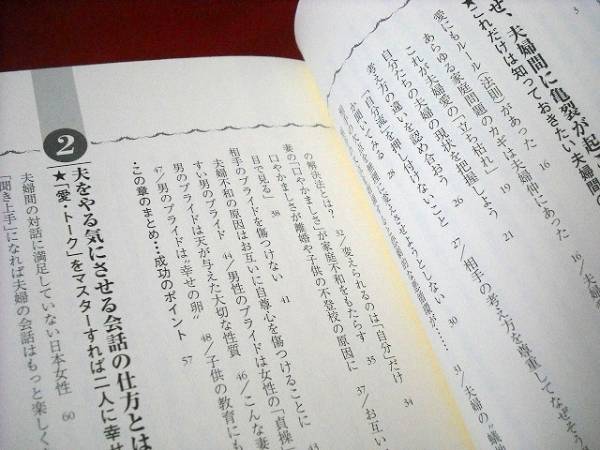 せ、夫婦間に亀裂が起こ
これだけは知っておきたい夫婦間の
3
愛にもルール（法則）があった 16
あらゆる家庭問題のカギは夫婦仲にあった 16／夫婦
これが夫婦愛の「立ち枯れ」 19
自分たちの夫婦の現状を把握しよう 21
考え方の違いを認め合おう 27／相手の考え方を尊重してなぜそう
「自分流」を押し付けないこと
30
31／夫婦の“
の解決法とは？ 32／変えられるのは「自分」だけ 34
妻の「口やかましさ」が家庭不和をもたらす 35
口やかましさが離婚や子供の不登校の原因に 37／お互い
目で見る」 38
相手のプライドを傷つけない 41
夫婦不和の原因はお互いに自尊心を傷つけることに
すい男のプライド 44／男性のプライドは女性の「貞操」
男のプライドは天が与えた大切な性質 46／こんな妻
47／男のプライドは“幸せの卵” 48／子供の教育にも
・この章のまとめ…成功のポイント 57
2
夫をやる気にさせる会話の仕方とは
★「愛・トーク」をマスターすれば二人に幸せ
夫婦間の対話に満足していない日本女性 60
「聞き上手」になれば夫婦の会話はもっと楽しく